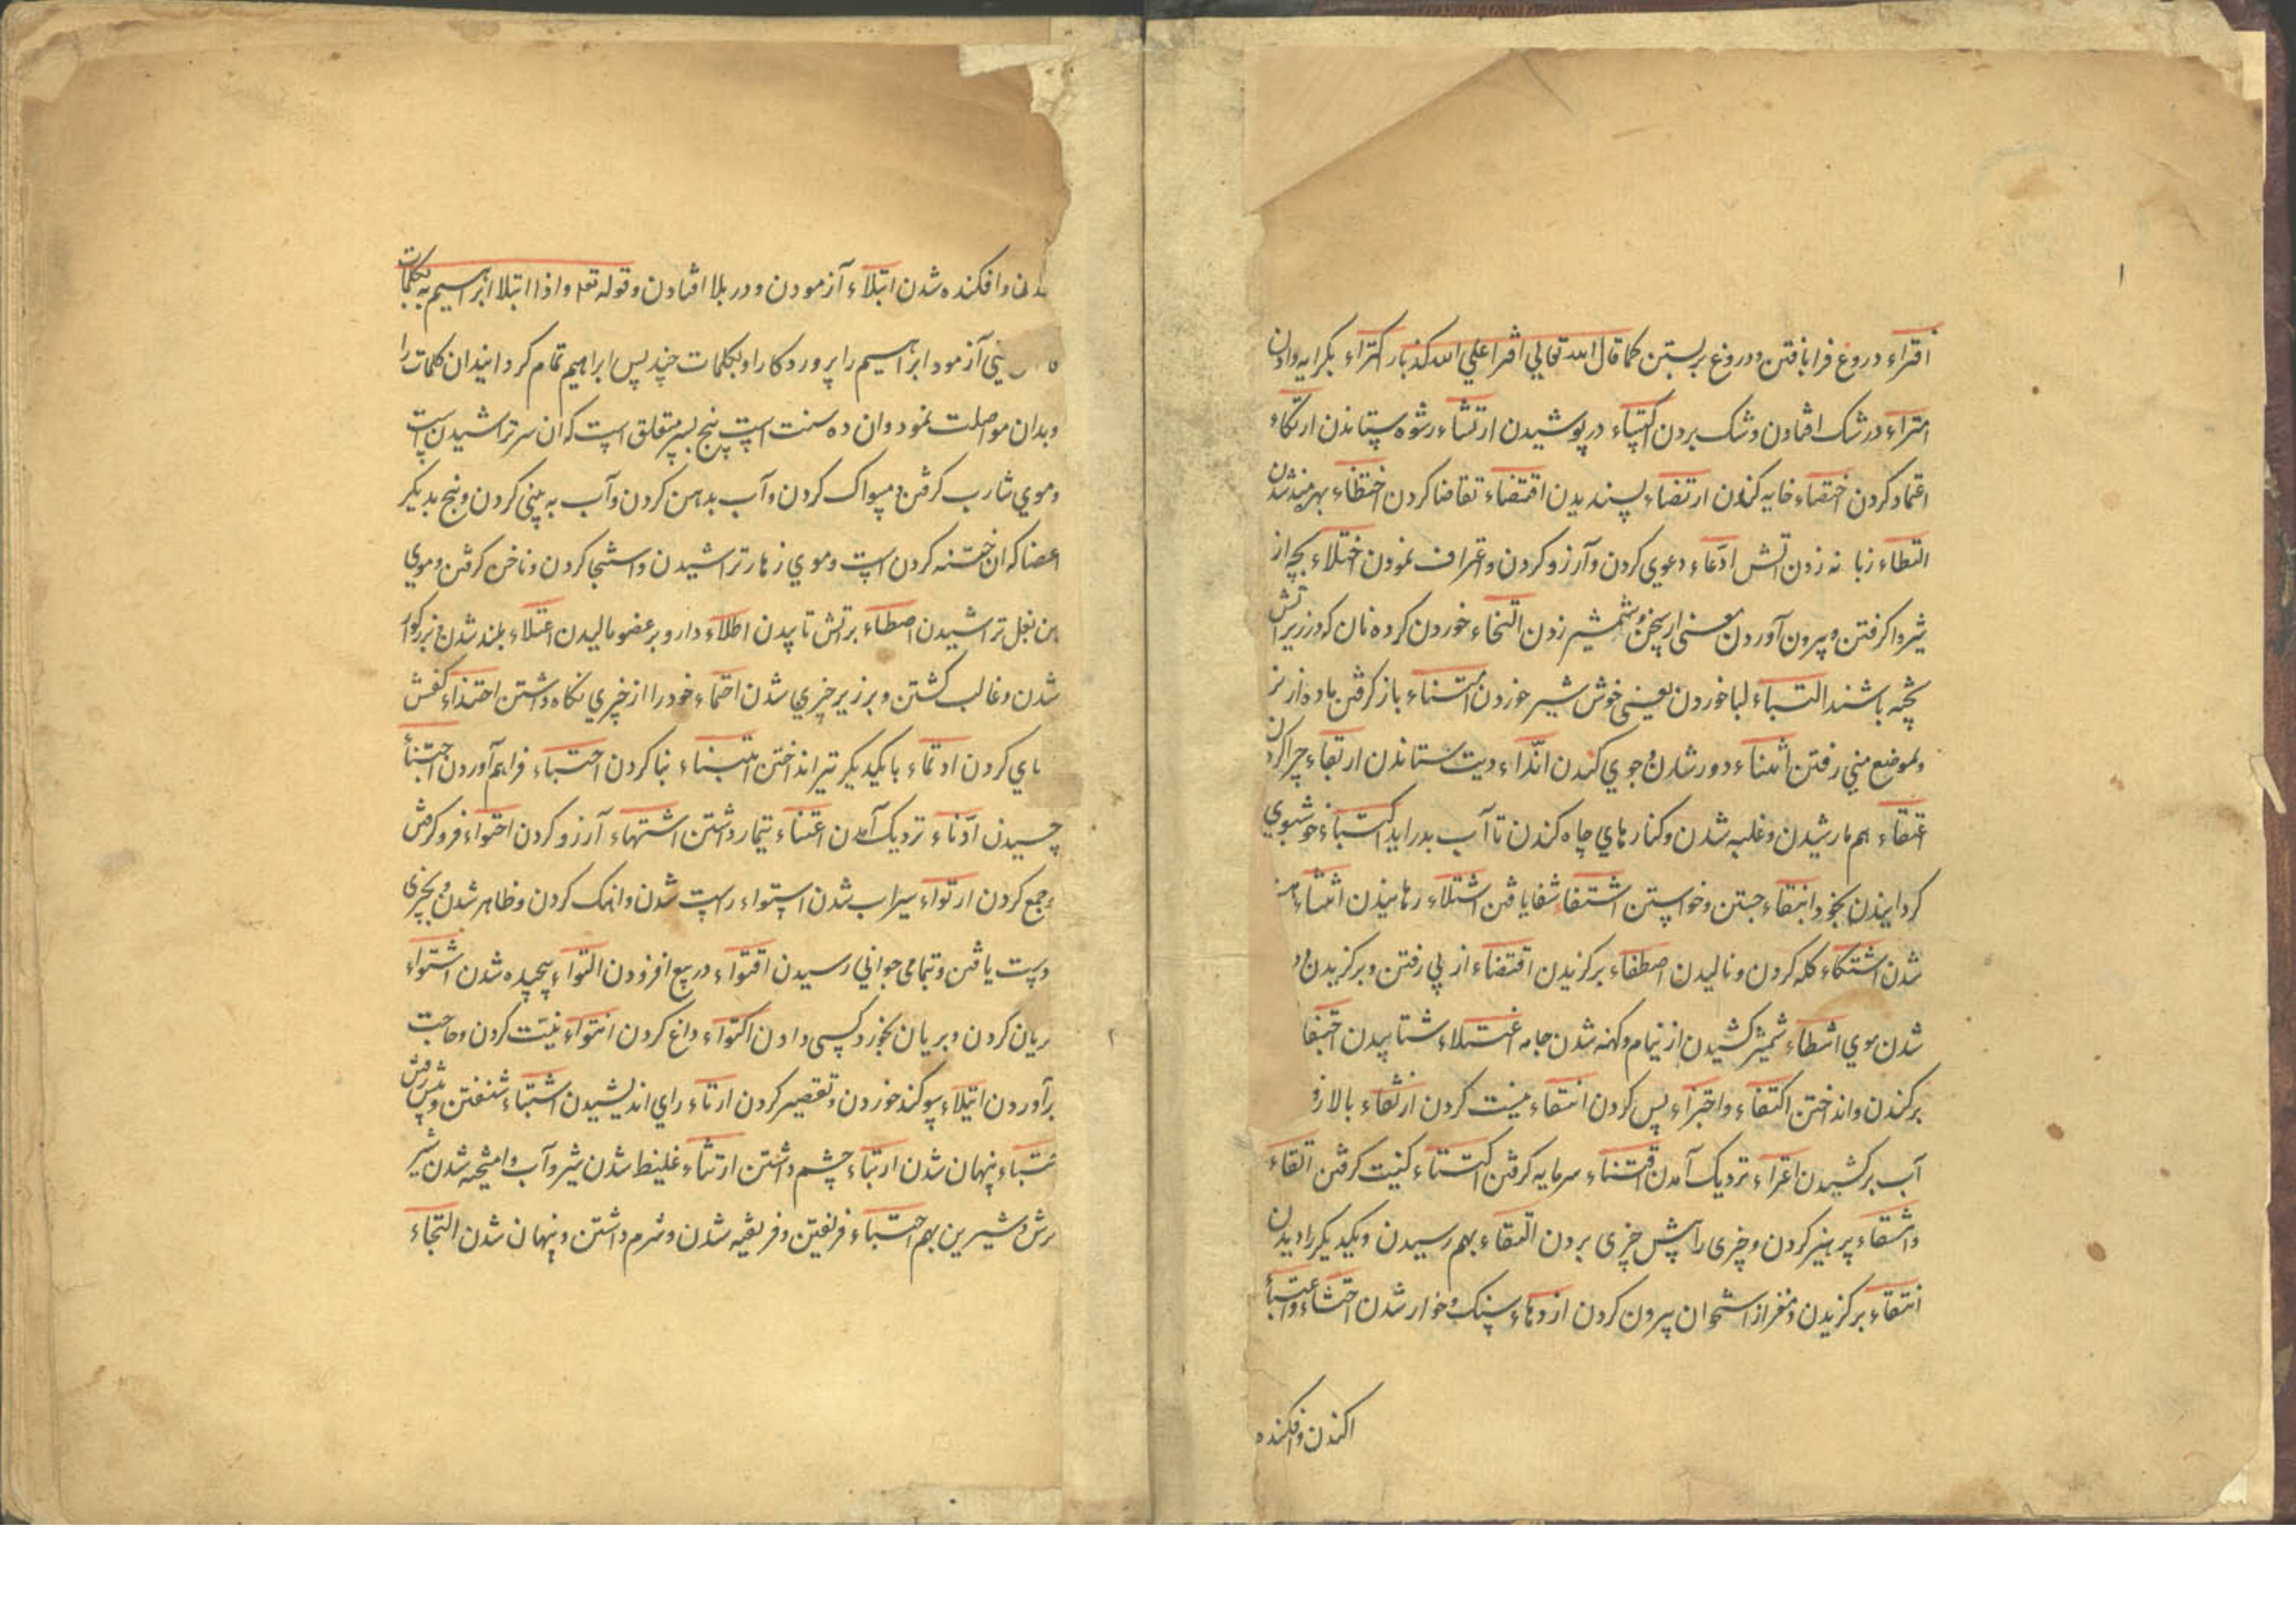 ۱
افتراء دروغ فرا بافتن و دروغ بر بستن کما قال الله تعالی افترا علی الله کذبا اکتراء بکرایه دادن
امتراء در شک افتادن و شک بردن اکتساء در پوشیدن ارتشاء رشوه ستاندن ارتکاء
اعتماد کردن اختصاء خایه کندن ارتضاء پسندیدن اقتضاء تقاضا کردن احتظاء بهرمند شدن
التظاء زبانه زدن اتش ادّعاء دعوی کردن و آرزو کردن و اعتراف نمودن اختلاء بچه از
شیر وا کرفتن و بیرون آوردن معنی از سخن و شمشیر زدن التخاء خوردن کرده نان که در زیر اتش
پخته باشند التباء لبا خوردن یعنی خوش شیر خوردن امتناء باز کرفتن ماده از نر
و بموضع منی رفتن اثناء دور شدن و جوی کندن اتّداء دیت ستاندن ارتعاء چرا کردن
اعتقاء هم مار شدن و غلبه شدن و کنارهای چاه کندن تا آب بدر اید اکتباء خوشبوی
کردانیدن بخود ابتغاء جستن و خواستن اشتفاء شفا یافتن اشتلاء رهانیدن انتشاء مست
شدن اشتکاء کله کردن و نالیدن اصطفاء برکزیدن اقتفاء از پی رفتن و برکزیدن و
شدن موی امتطاء شمشیر کشیدن از نیام و کهنه شدن جامه اغتلاء شتابیدن اختفا
برکندن و انداختن اکتفاء و اجتزاء پس کردن انتفاء نیست کردن ارتقاء بالا رفـ
آب برکشیدن اعتراء نزدیک آمدن اقتناء سرمایه کرفتن اکتناء کنیت کرفتن اتقاء
و اشتقاء پرهیز کردن و چیزی را پیش چیزی بردن التقاء بهم رسیدن و یکدیکر را دیدن
انتقاء برکزیدن و مغز از استخوان بیرون کردن ازدهاء سبک و خوار شدن احتشاء و اعتباء
اکندن و افکنده
۲
و افکنده شدن ابتلاء آزمودن و در بلا افتادن و قوله تع و اذا ابتلا ابراهیم ربه بکلمات
یعنی آزمود ابراهیم را پروردکار او بکلمات چند پس ابراهیم تمام کردانیدان کلمات را
و بدان مواصلت نمود و ان ده سنت است پنج بسر متعلق است که ان سر تراشیدن است
و موی شارب کرفتن و مسواک کردن و آب بدهن کردن و آب به بینی کردن و پنج بدیکر
اعضا که ان ختنه کردن است و موی زهار تراشیدن و استنجا کردن و ناخن کرفتن و موی
بن بغل تراشیدن اصطلاء بر اتش تابیدن اطلاء دارو بر عضو مالیدن اعتلاء بلند شدن و بزرکوار
شدن و غالب کشتن و بر زبر چیزی شدن احتماء خود را از چیزی نکاه داشتن احتذاء کفش
پای کردن ارتماء با یکدیکر تیر انداختن ابتناء بنا کردن احتباء فراهم آوردن اجتناء
چیدن ادّناء نزدیک آمدن اعتناء تیمار داشتن اشتهاء آرزو کردن احتواء فرو کرفتن
و جمع کردن ارتواء سیراب شدن استواء راست شدن و اهنک کردن و ظاهر شدن و بچیزی
دست یافتن و بتمامی جوانی رسیدن اقتواء در بیع افزودن التواء پیچیده شدن اشتواء
بریان کردن و بریان بخورد کسی دادن اکتواء داغ کردن انتواء نیت کردن و حاجت
برآوردن ایتلاء سوکند خوردن و تقصیر کردن ارتاء رای اندیشیدن اشتباء شنفتن و پیش رفتن
اختباء پنهان شدن ارتباء چشم داشتن ارتثاء غلیظ شدن شیر و آب و امیخته شدن شیر
ترش و شیرین بهم اختتاء فریفتن و فریفته شدن و شرم داشتن و پنهان شدن التجاء